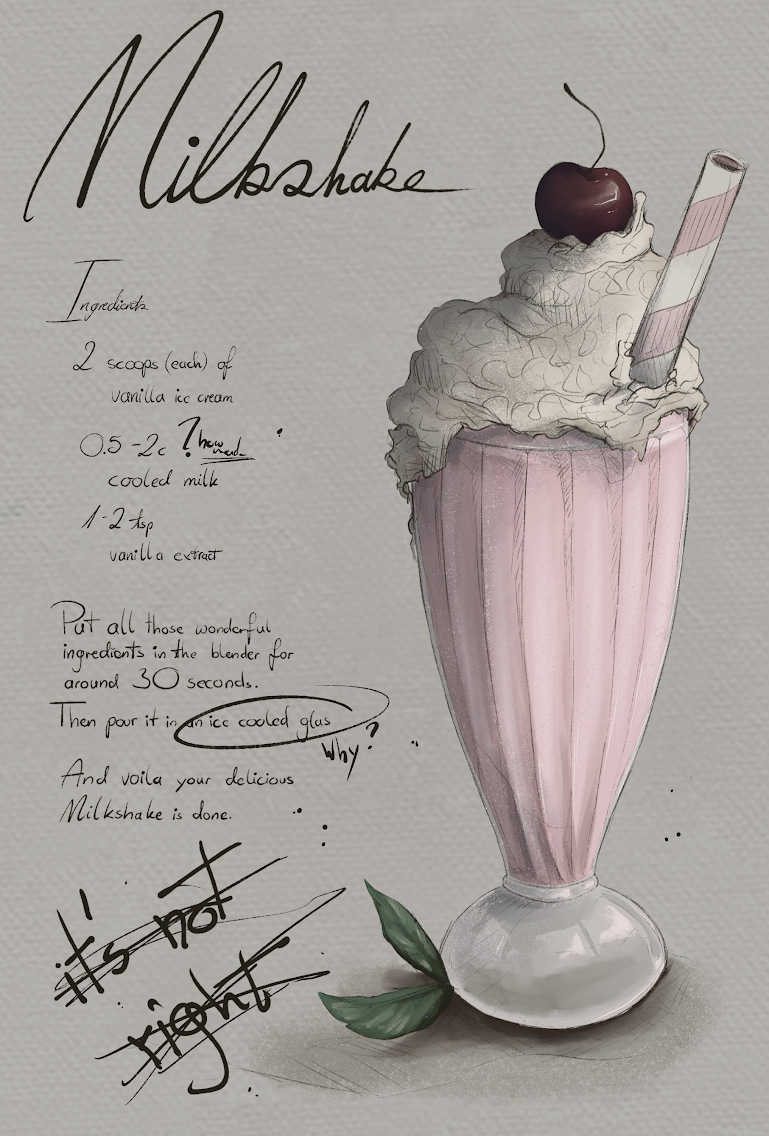 Milkshake
Ingredients
2 scoops (each) of
vanilla ice cream
0.5 - 2c ? how
cooled milk
1-2 tsp
vanilla extract
Put all those wonderful
ingredients in the blender for
around 30 seconds.
Then pour it in an ice cooled glas
Why?
And voila your delicious
Milkshake is done.
it's not
right